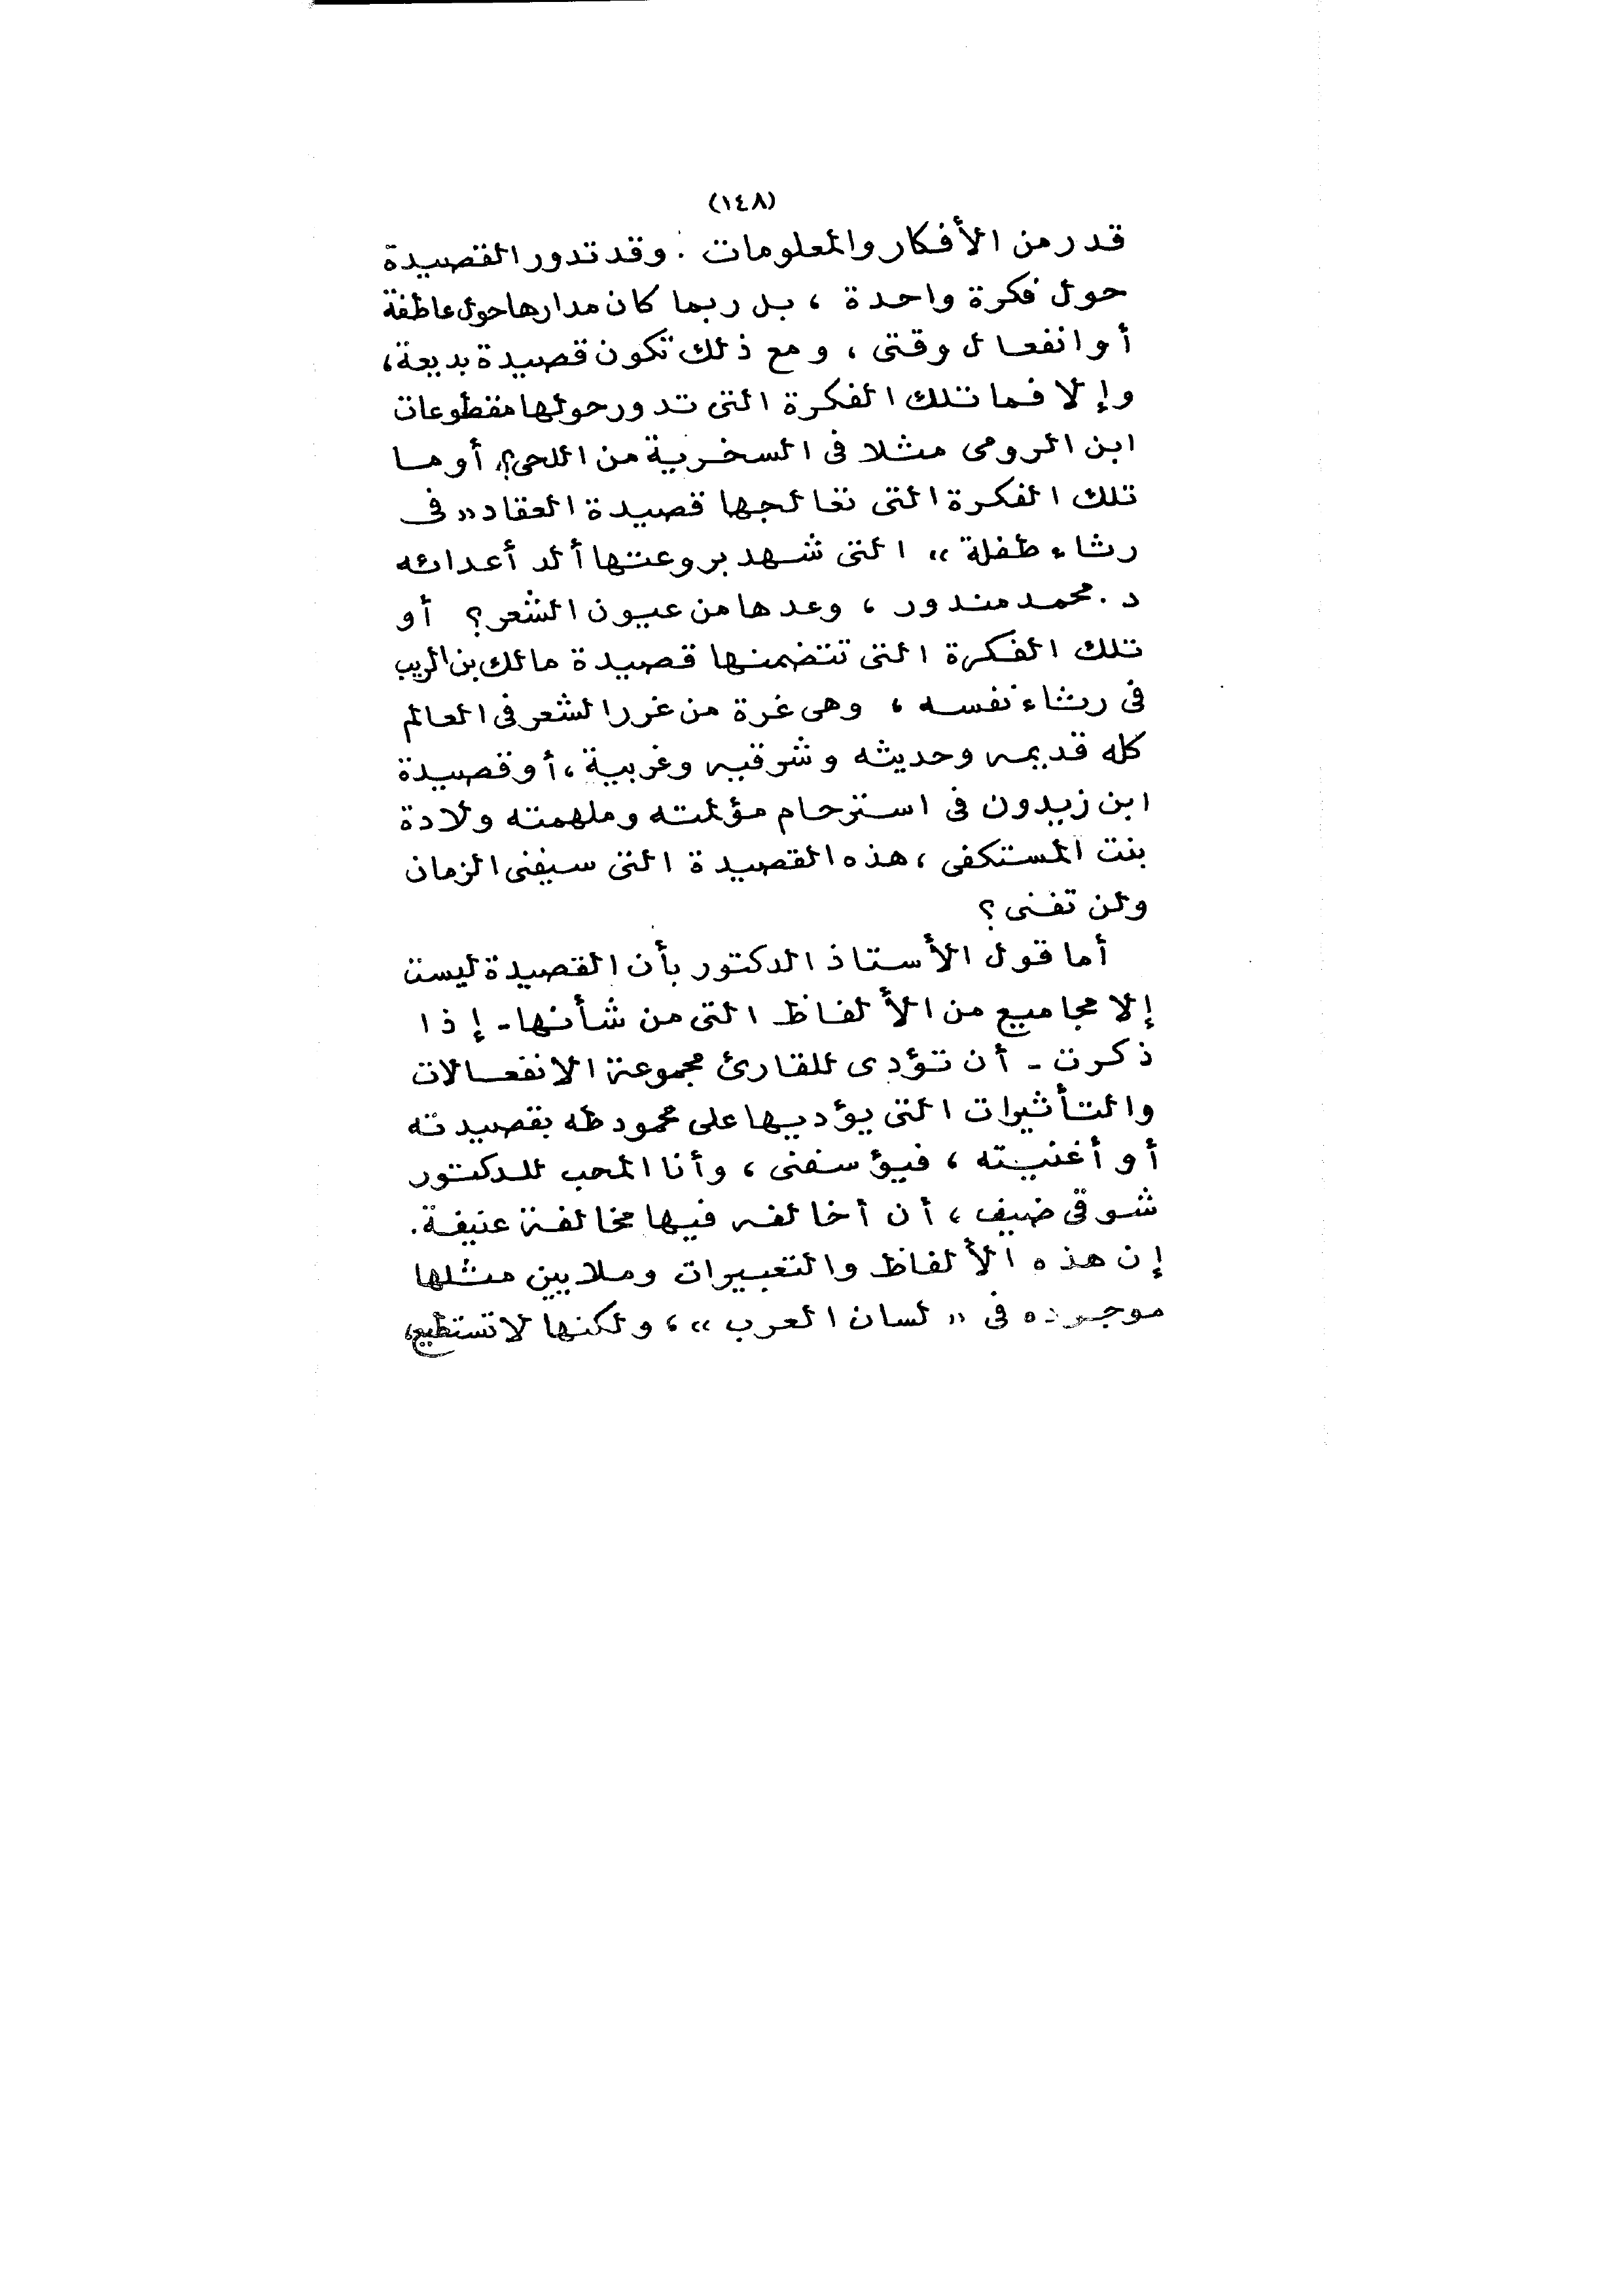 (١٤٨)
قدر من الأفكار والمعلومات . وقد تدور القصيدة
حول فكرة واحدة ، بل ربما كان مدارها حول عاطفة
أو انفعال وقتى ، ومع ذلك تكون قصيدة بديعة ،
وإلا فما تلك الفكرة التى تدور حولها مقطوعات
ابن الرومى مثلا فى السخرية من اللحى؟ أو ما
تلك الفكرة التى تعالجها قصيدة العقاد « فى
رثاء طفلة » التى شهد بروعتها ألد أعدائه
د . محمد مندور ، وعدها من عيون الشعر ؟ أو
تلك الفكرة التى تتضمنها قصيدة مالك بن الريب
فى رثاء نفسه ، وهى غرة من غرر الشعر فى العالم
كله قديمه وحديثه وشرقيه وغربية ، أو قصيدة
ابن زيدون فى استرحام مؤلمته وملهمته ولادة
بنت المستكفى ، هذه القصيدة التى سيفنى الزمان
ولن تفنى ؟
أما قول الأستاذ الدكتور بأن القصيدة ليست
إلا مجاميع من الألفاظ التى من شأنها - إذا
ذكرت - أن تؤدى للقارئ مجموعة الانفعالات
والتأثيرات التى يؤديها على محمود طه بقصيدته
أو أغنيته ، فيؤسفنى ، وأنا المحب للدكتور
شوقى ضيف ، أن أخالفه فيها مخالفة عنيفة .
إن هذه الألفاظ والتعبيرات وملايين مثلها
موجوده فى « لسان العرب » ، ولكنها لا تستطيع ،